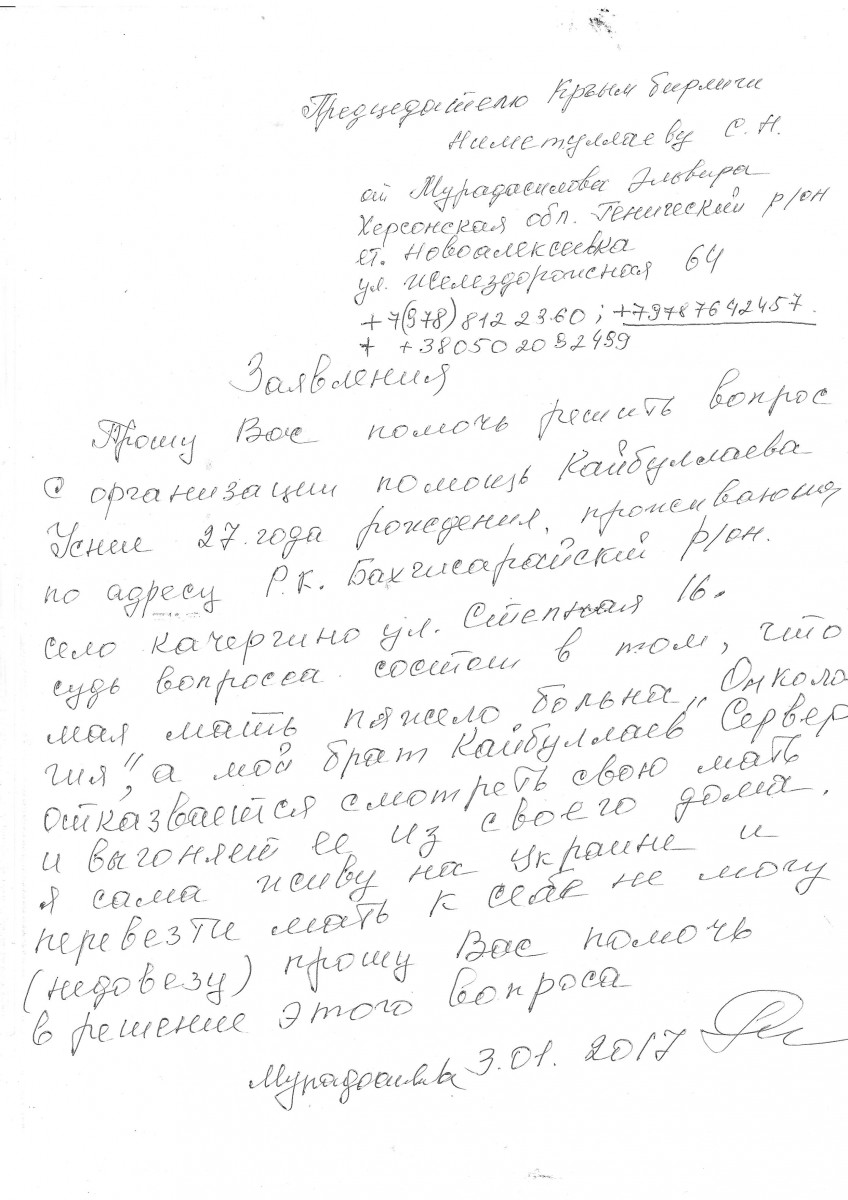 Предцедателю Кърым бирлиги
Ниметуллаеву С. Н.
от Мурадасилова Эльвира
Херсонская обл. Генический р/он
ст. Новоалексеевка
ул. Желездорожная 64
+7(978) 812 23 60 ; +79787642457.
+ +380502092499
Заявления
Прошу Вас помочь решить вопрос
о организации помощь Кайбуллаева
Усние 27 года рождения, проживающ
по адресу Р.К. Бахчисарайский р/он.
село Качергино ул. Степная 16.
судь вопросса состои в том, что
мая мать тяжело больна „Онколо
гия", а мой брат Кайбуллаев Сервер
отказвается смотреть свою мать
и выгоняет ее из своего дома.
я сама живу на Украине и
перевезти мать к себе не могу
(недовезу) прошу Вас помочь
в решение этого вопроса
3.01. 2017